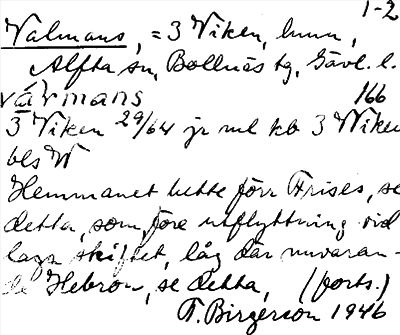 1-2
Valmans, = 3 Viken, hmn,
Alfta sn, Bollnäs tg, Gävl. l.
vármans 166
3 Viken 29/64 jr ml kb 3 Wiken
bls W
Hemmanet hette förr Frises, se
detta, som, före utflyttning vid
laga skiftet, låg där nuvaran-
de Hebron, se detta, (forts.)
F. Birgerson 1946